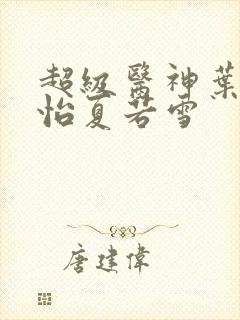 超級醫神葉
怡夏若雪
唐建偉